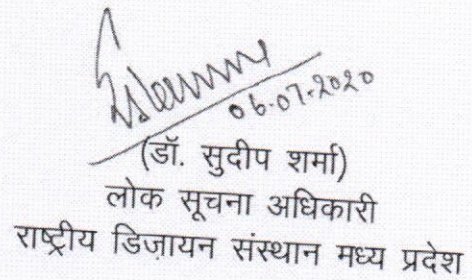 06.07.2020
(डॉ. सुदीप शर्मा)
लोक सूचना अधिकारी
राष्ट्रीय डिज़ायन संस्थान मध्य प्रदेश